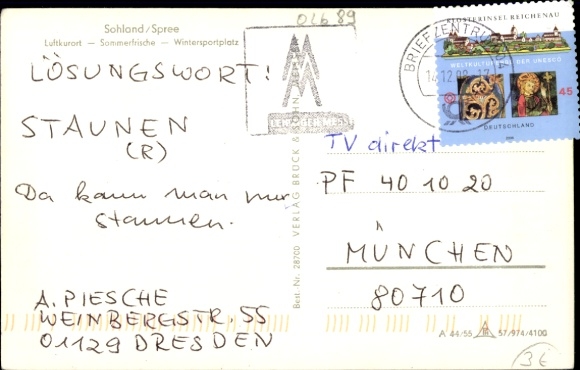 Sohland/Spree
Luftkurort – Sommerfrische – Wintersportplatz
LÖSUNGSWORT!
STAUNEN
(R)
Da kann man nur
staunen.
A. PIESCHE
WEINBERGSTR. 55
01129 DRESDEN
Best. Nr. 28700 VERLAG BRÜCK & SOHN
BRIEFZENTRUM
KLOSTERINSEL REICHENAU
WELTKULTURERBE DER UNESCO
45
DEUTSCHLAND
TV direkt
PF 40 10 20
MÜNCHEN
80710
A 44/55 57/974/4100
3€